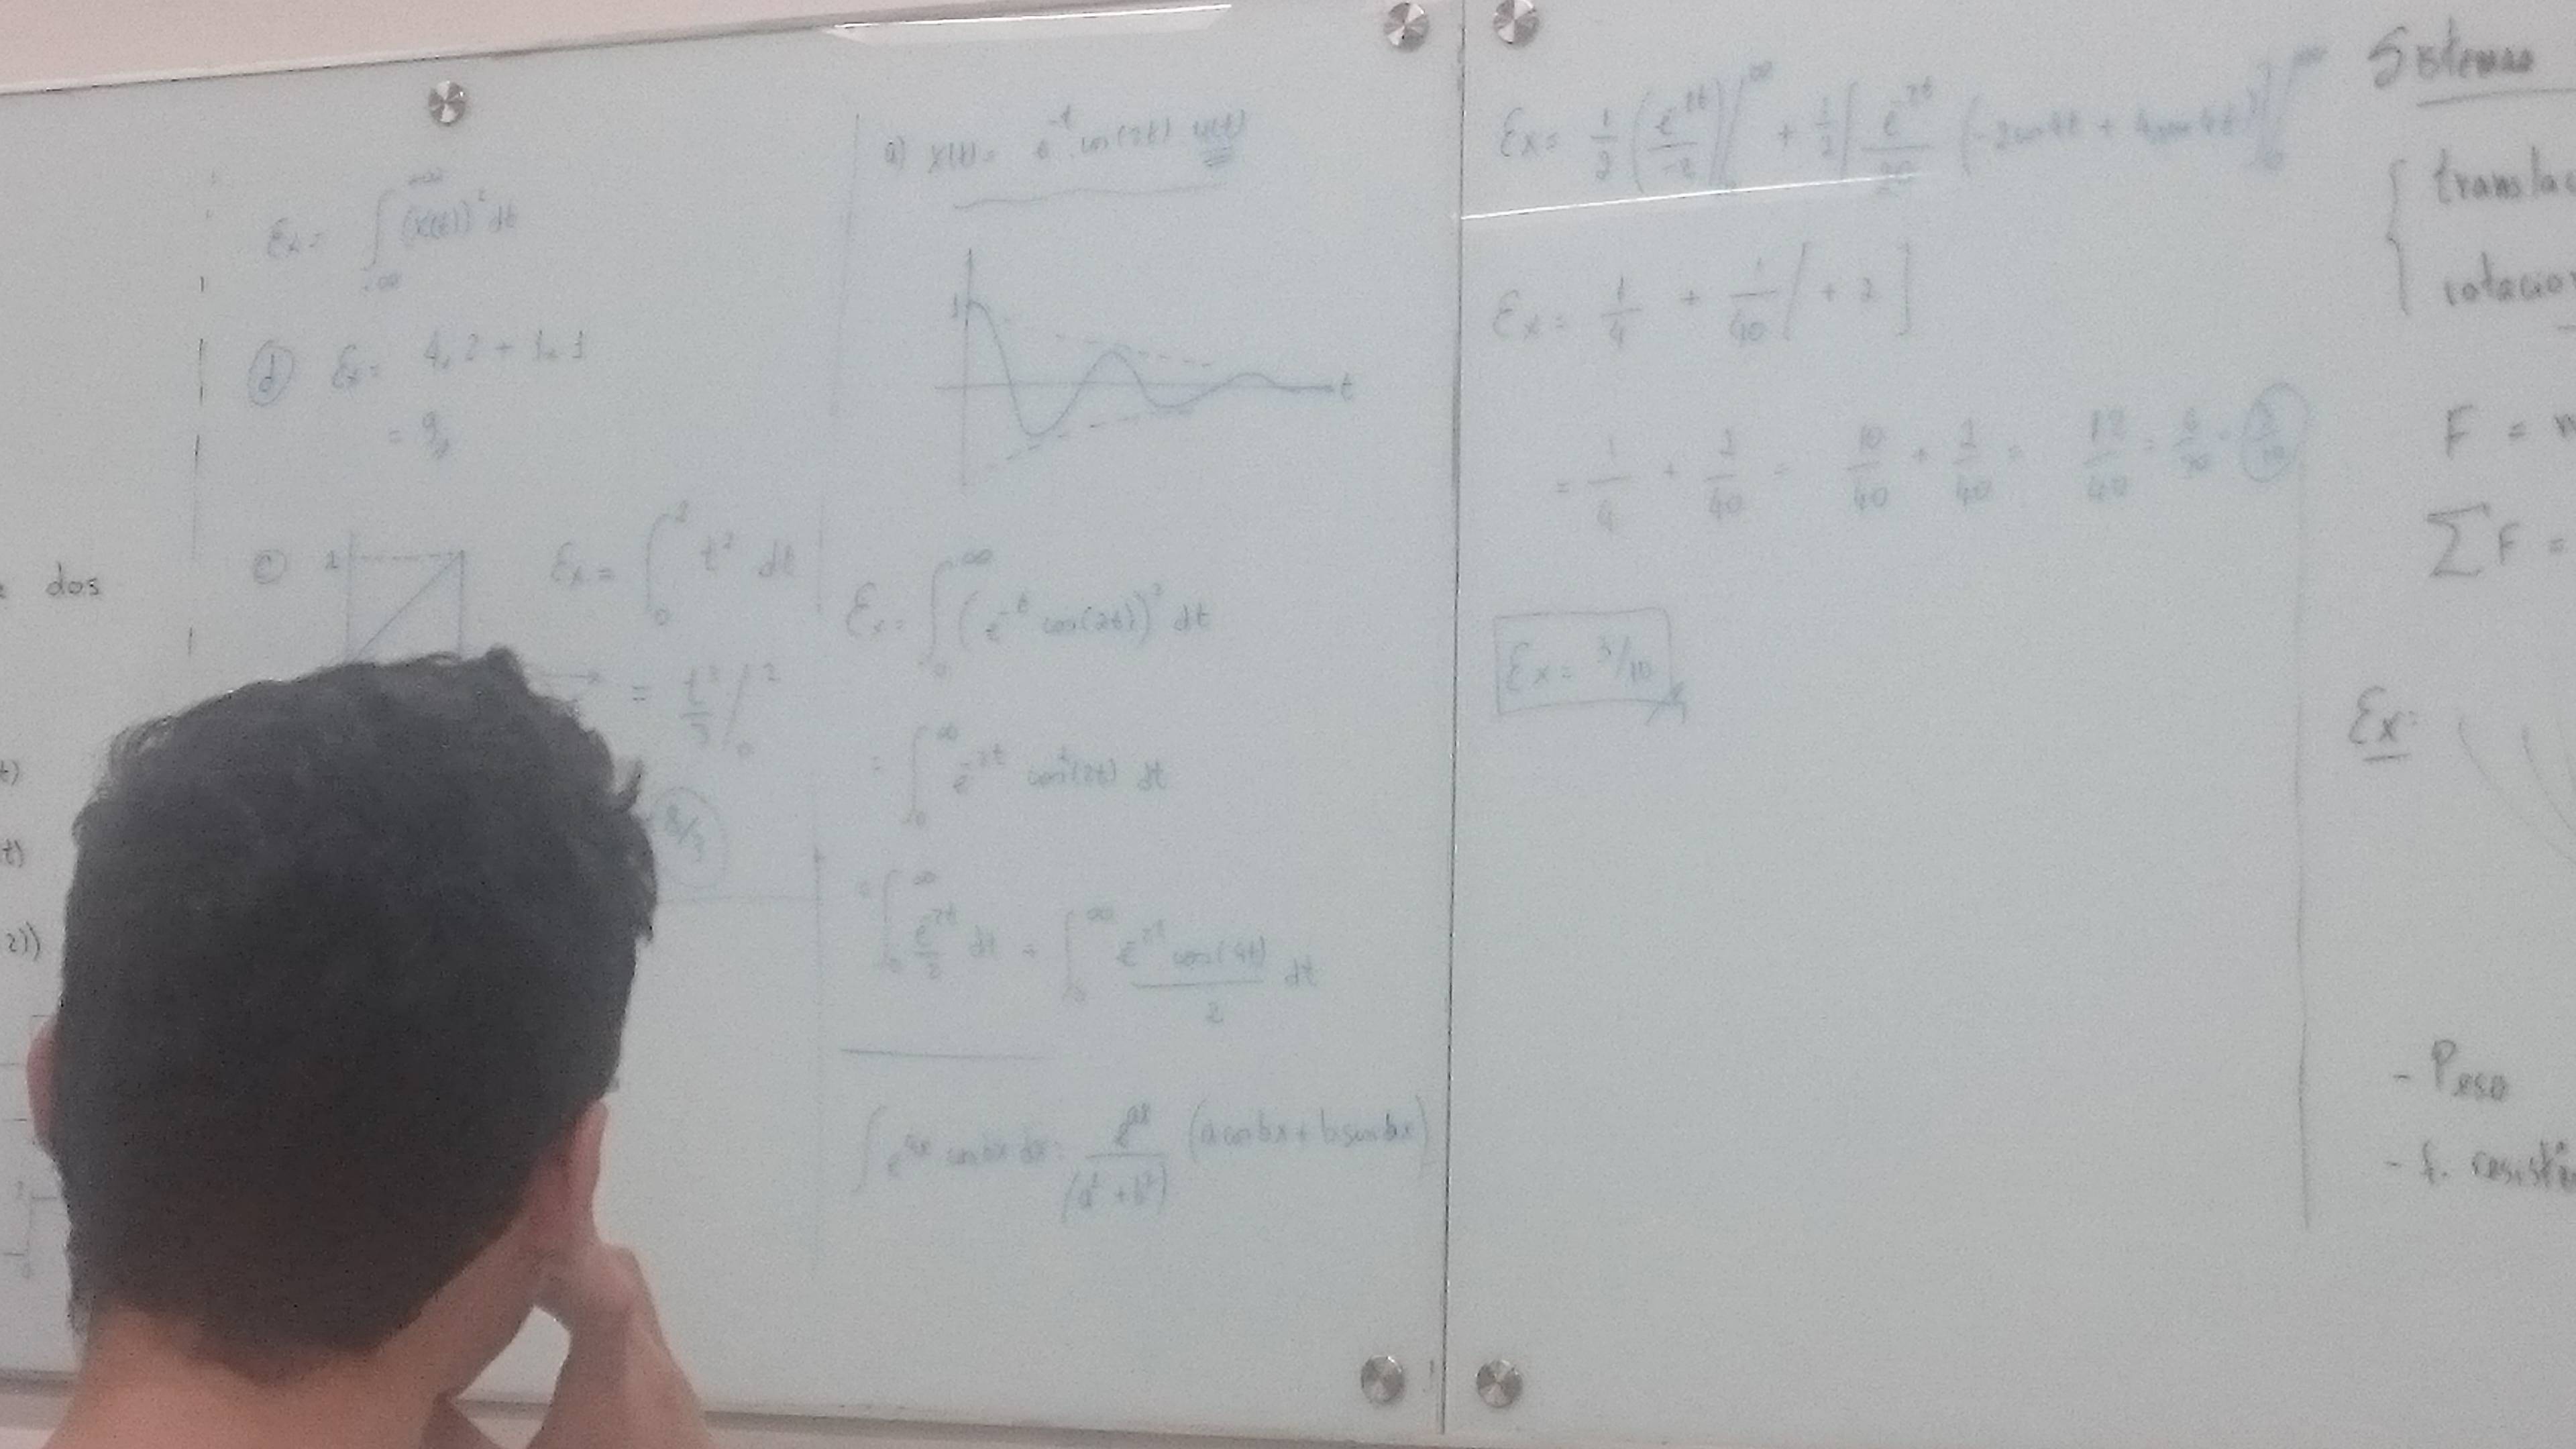 e dos
t)
t)
2))
Ex = ∫_{-∞}^{+∞} (x(t))² dt
d) Ex = 4.2 + 1.1
= 9
c) 2
Ex = ∫_0^2 t² dt
= t³/3 |_0^2
8/3
a) x(t) = e^{-t} . cos(2t) u(t)
1
t
Ex = ∫_0^∞ (e^{-t} cos(2t))² dt
= ∫_0^∞ e^{-2t} cos²(2t) dt
= ∫_0^∞ e^{-2t}/2 dt + ∫_0^∞ e^{-2t} cos(4t)/2 dt
∫ e^{ax} cos bx dx = e^{ax}/(a² + b²) (a cos bx + b sen bx)
Ex = 1/2 (e^{-2t}/-2) |_0^∞ + 1/2 [e^{-2t}/20 (-2 cos 4t + 4 sen 4t)] |_0^∞
Ex = 1/4 + 1/40 [+ 2]
= 1/4 + 2/40 = 10/40 + 2/40 = 12/40 = 6/20 = 3/10
Ex = 3/10
Sistemas
F =
∑F =
Ex:
- Peso